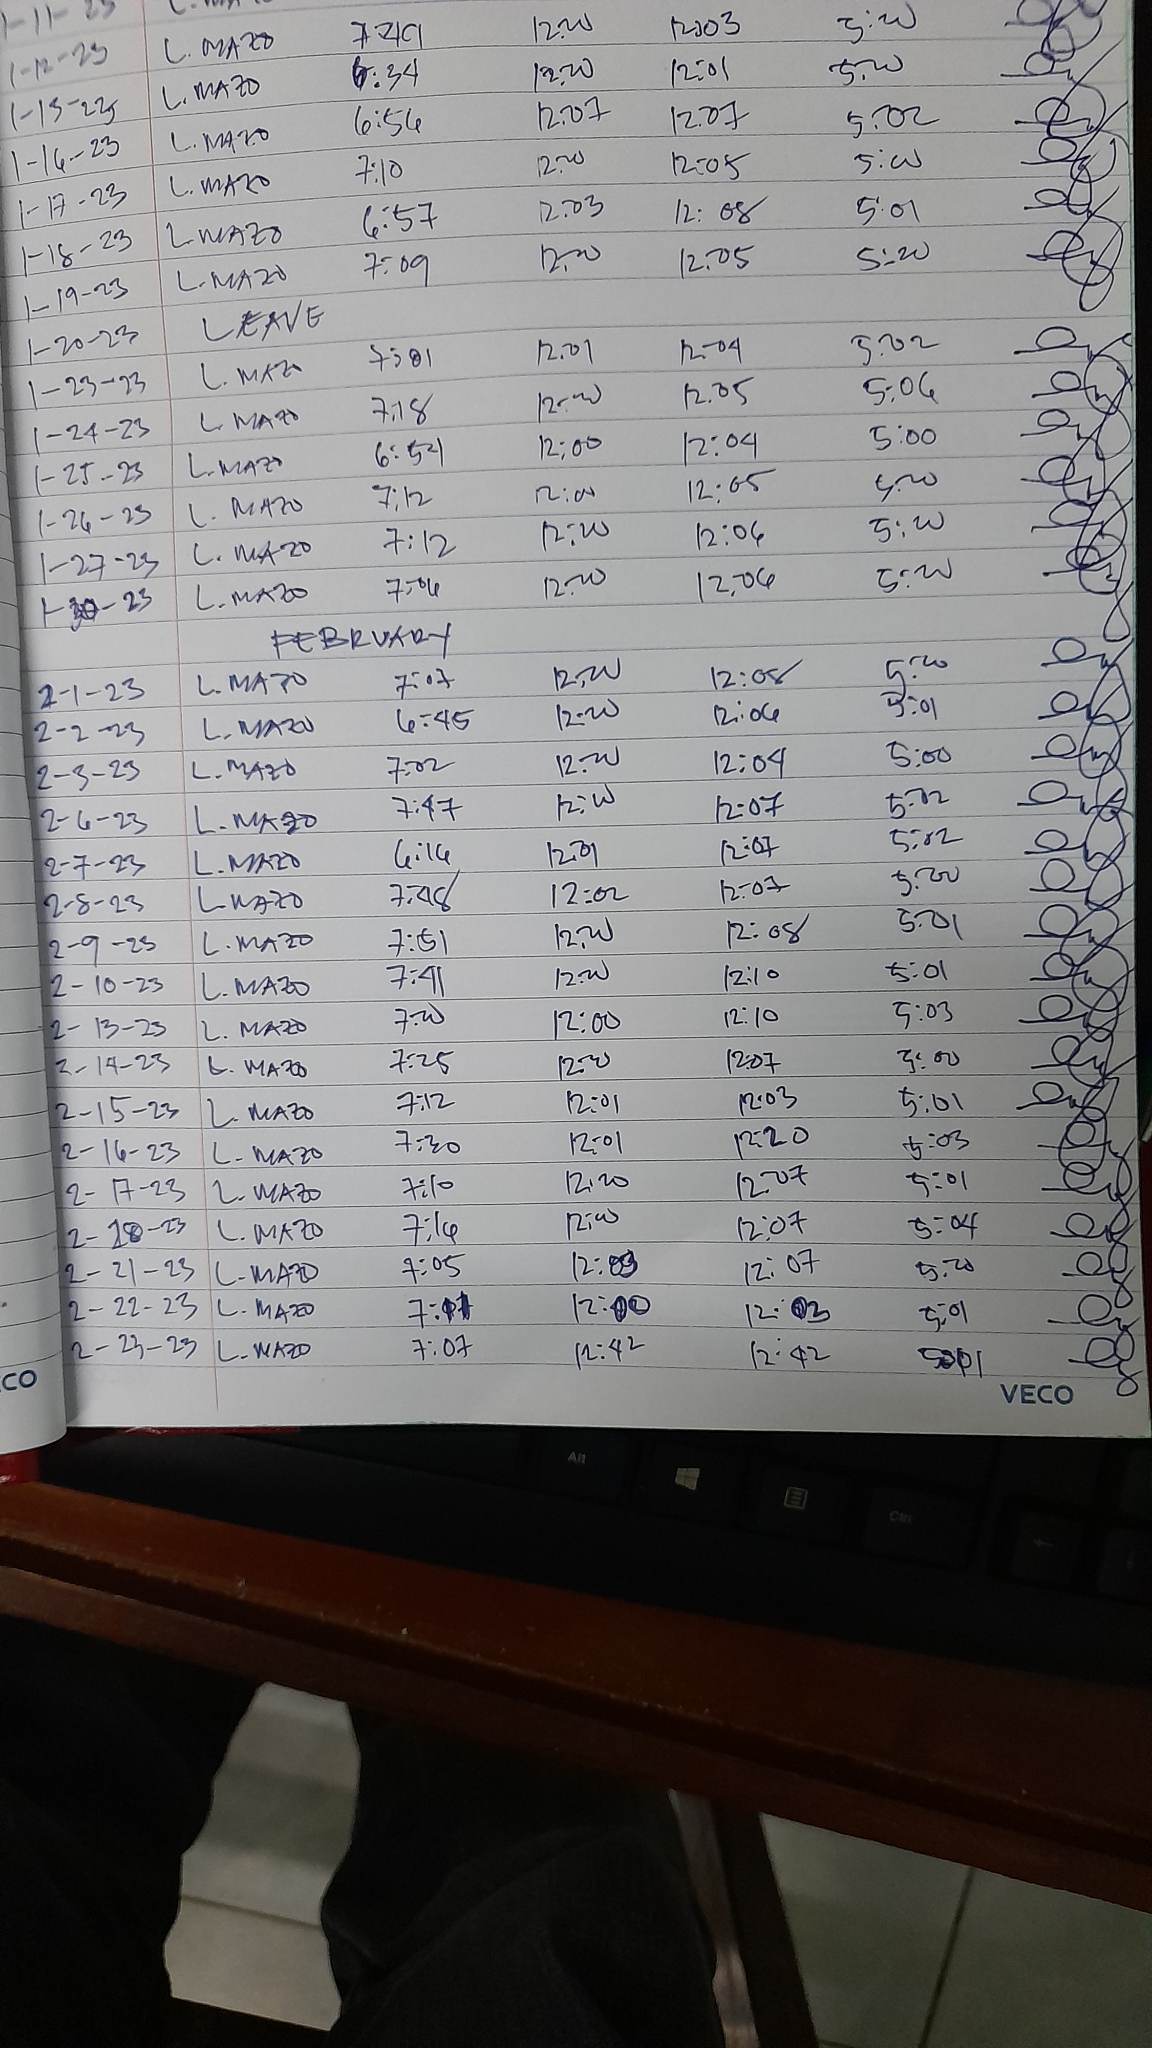 1-11-23
1-12-23 L. MAZO 7:49 12:00 12:03 5:00
1-13-23 L. MAZO 6:34 12:00 12:01 5:00
1-16-23 L. MAZO 6:56 12:07 12:07 5:02
1-17-23 L. MAZO 7:10 12:00 12:05 5:00
1-18-23 L. MAZO 6:57 12:03 12:08 5:01
1-19-23 L. MAZO 7:09 12:00 12:05 5:00
1-20-23 LEAVE
1-23-23 L. MAZO 7:01 12:01 12:04 5:02
1-24-23 L. MAZO 7:18 12:00 12:05 5:06
1-25-23 L. MAZO 6:54 12:00 12:04 5:00
1-26-23 L. MAZO 7:12 12:00 12:05 5:00
1-27-23 L. MAZO 7:12 12:00 12:06 5:00
1-30-23 L. MAZO 7:06 12:00 12:06 5:00
FEBRUARY
2-1-23 L. MAZO 7:07 12:00 12:08 5:00
2-2-23 L. MAZO 6:45 12:00 12:06 5:01
2-3-23 L. MAZO 7:02 12:00 12:04 5:00
2-6-23 L. MAZO 7:47 12:00 12:07 5:02
2-7-23 L. MAZO 6:16 12:01 12:07 5:02
2-8-23 L. MAZO 7:48 12:02 12:07 5:00
2-9-23 L. MAZO 7:51 12:00 12:08 5:01
2-10-23 L. MAZO 7:41 12:00 12:10 5:01
2-13-23 L. MAZO 7:00 12:00 12:10 5:03
2-14-23 L. MAZO 7:25 12:00 12:07 5:00
2-15-23 L. MAZO 7:12 12:01 12:03 5:01
2-16-23 L. MAZO 7:20 12:01 12:20 5:03
2-17-23 L. MAZO 7:10 12:00 12:07 5:01
2-20-23 L. MAZO 7:16 12:00 12:07 5:04
2-21-23 L. MAZO 7:05 12:03 12:07 5:00
2-22-23 L. MAZO 7:11 12:00 12:03 5:01
2-23-23 L. MAZO 7:07 12:42 12:42 5:01
CO VECO
Alt
Ctrl